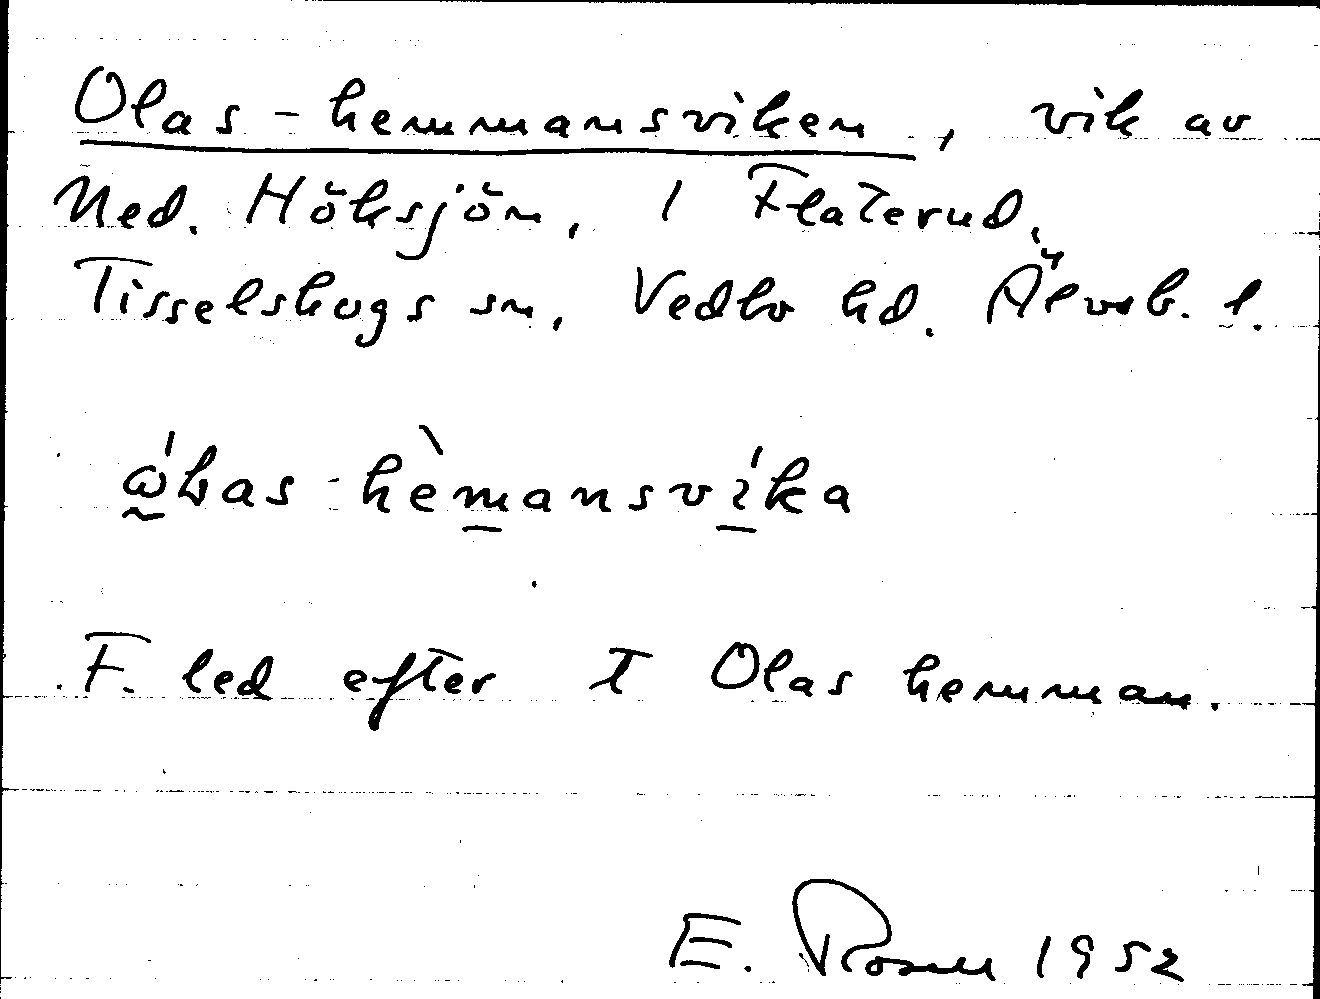 Olas-hemmansviken, vik av
Ned. Höksjön, 1 Flaterud,
Tisselskogs sn, Vedbo hd. Älvsb. l.
hèmansvíka
F. led efter T Olas hemman.
E. Rosell 1952